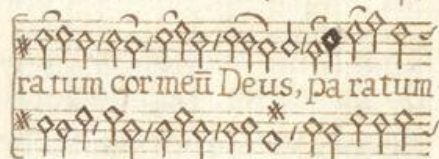 ratum cor meū Deus, pa ratum